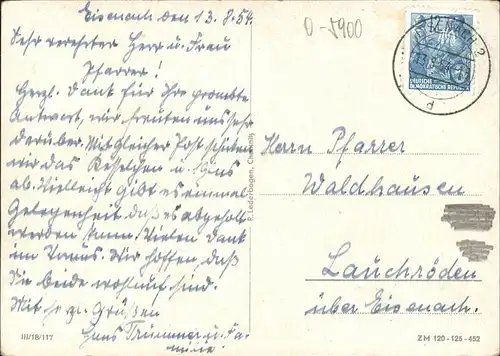 Eisenach den 13.8.54.
Sehr verehrter Herr u. Frau
Pfarrer!
Herzl. Dank für Ihre prompte
Antwort, wir freuten uns sehr
darüber. Mit gleicher Post schicken
wir das Kesselchen u. Guss
ab. Vielleicht gibt es einmal
Gelegenheit, daß es abgeholt
werden kann. Vielen Dank
im Voraus. Wir hoffen, daß
Sie beide wohlauf sind.
Mit herzl. Grüßen
Hans Trümmer u. Fa-
milie!
III/18/117
R. Lederbogen, Chemnitz
O-5900
DEUTSCHE
DEMOKRATISCHE REPUBLIK
d
Herrn Pfarrer
Waldhausen
Lauchröden
über Eisenach.
ZM 120-125-452